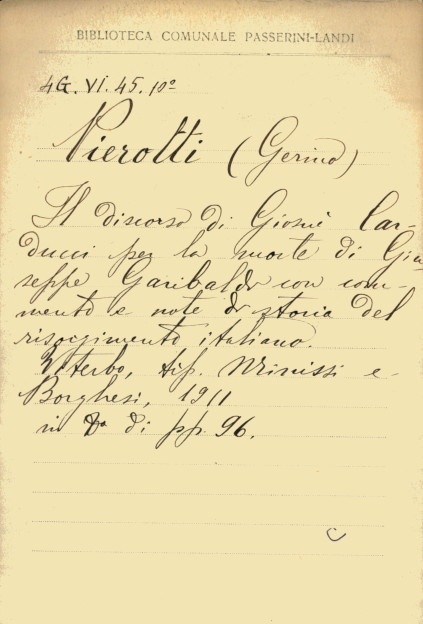 BIBLIOTECA COMUNALE PASSERINI-LANDI
4G. VI. 45. 10º
Pierotti (Gerino)
Il discorso di Giosuè Car-
ducci per la morte di Giu
seppe Garibaldi con com-
mento e note di storia del
risorgimento italiano.
Viterbo, tip. Minissi e
Borghesi, 1911
in 8º di pp. 96.